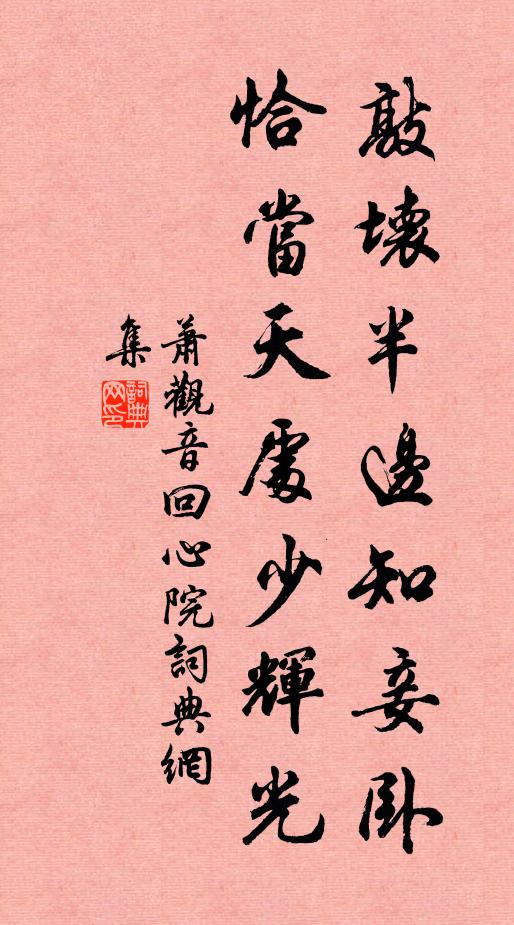 敲壞半邊知妾臥
恰當天處少輝光
蕭觀音回心院詞典網
集
詞典
网印